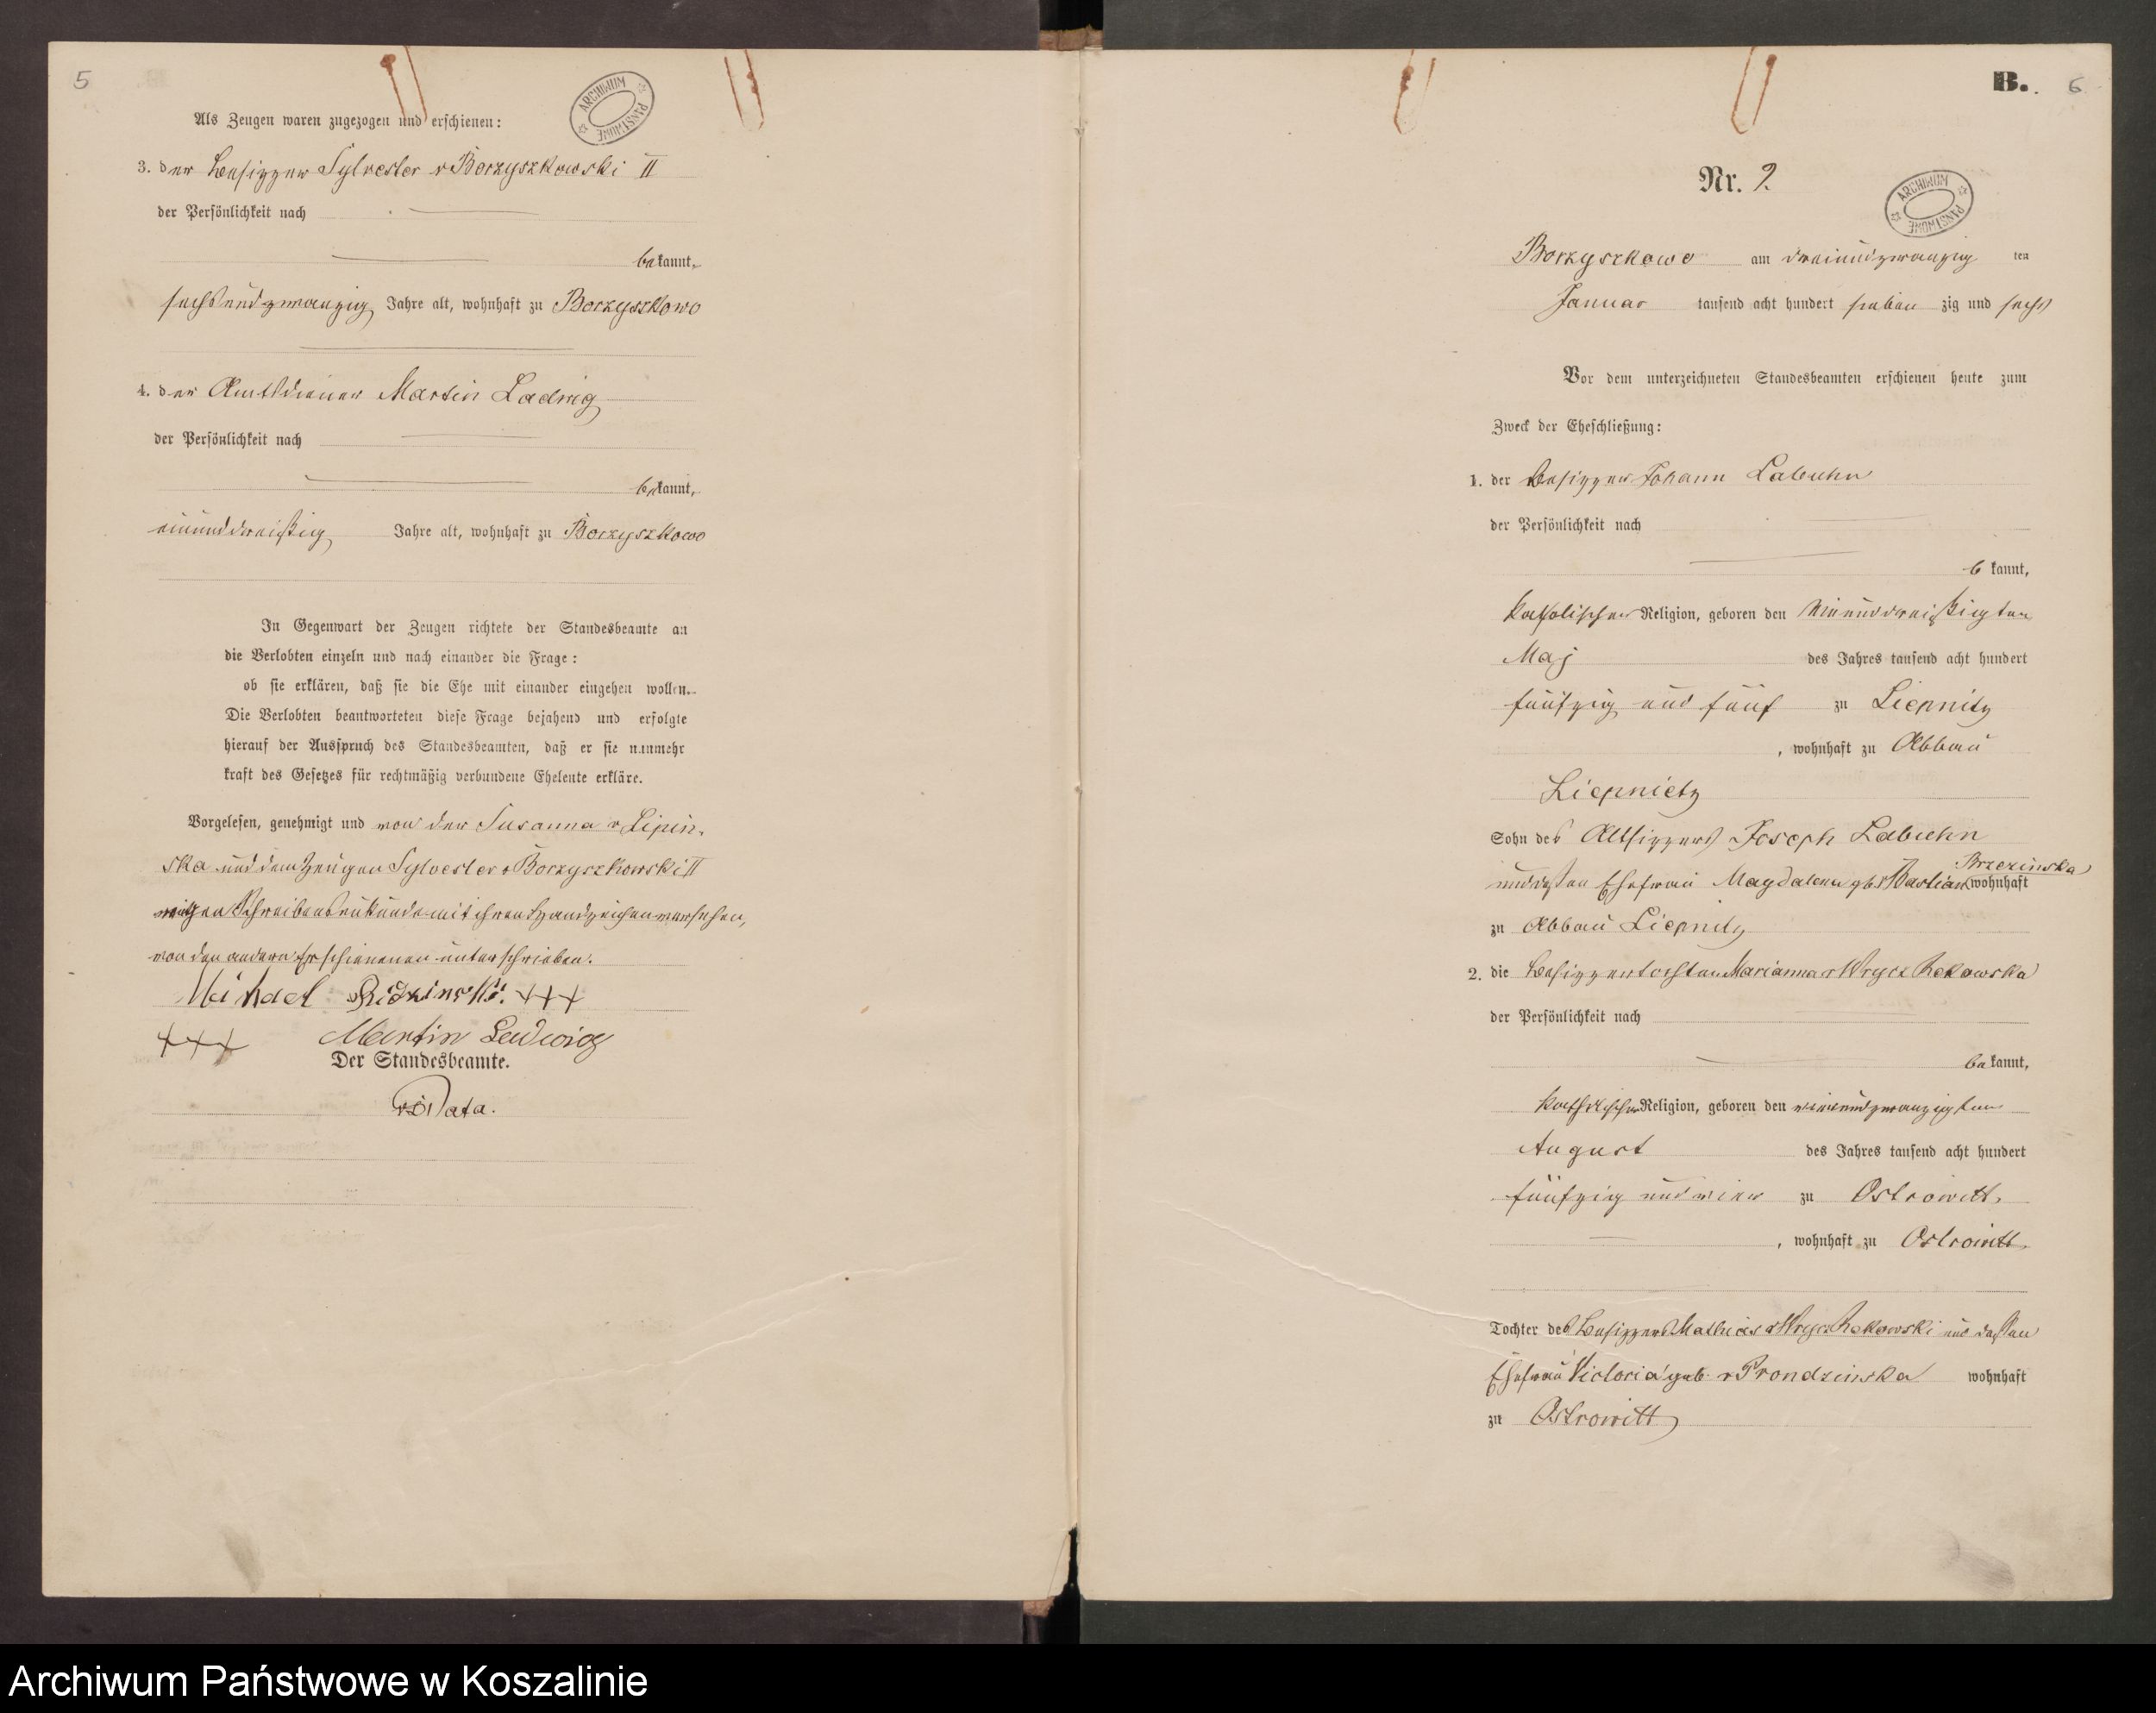 5
ARCHIWUM PAŃSTWOWE
Als Zeugen waren zugezogen und erschienen:
3. der Besitzer Sylvester v Borzyszkowski II
der Persönlichkeit nach
bekannt,
sechsundzwanzig Jahre alt, wohnhaft zu Borzyszkowo
4. der Amtsdiener Martin Ladwig
der Persönlichkeit nach
bekannt,
einunddreißig Jahre alt, wohnhaft zu Borzyszkowo
In Gegenwart der Zeugen richtete der Standesbeamte an
die Verlobten einzeln und nach einander die Frage:
ob sie erklären, daß sie die Ehe mit einander eingehen wollen.
Die Verlobten beantworteten diese Frage bejahend und erfolgte
hierauf der Ausspruch des Standesbeamten, daß er sie nunmehr
kraft des Gesetzes für rechtmäßig verbundene Eheleute erkläre.
Vorgelesen, genehmigt und von der Susanna v Lipin-
ska und dem Zeugen Sylvester v Borzyszkowski II
wegen Schreibensunkunde mit ihren Handzeichen versehen,
von den andern Erschienenen unterschrieben.
Michael +++
+++ Martin Ladwig
Der Standesbeamte.
B. 6
Nr. 2.
ARCHIWUM PAŃSTWOWE
Borzyszkowo am dreiundzwanzig ten
Januar tausend acht hundert sieben zig und sechs
Vor dem unterzeichneten Standesbeamten erschienen heute zum
Zweck der Eheschließung:
1. der Besitzer Johann Labuhn
der Persönlichkeit nach
b kannt,
katholischer Religion, geboren den einunddreißigten
Maj des Jahres tausend acht hundert
fünfzig und fünf zu Liepnitz
, wohnhaft zu Abbau
Liepnietz
Sohn des Altsitzers Joseph Labuhn
Brzezinska
und dessen Ehefrau Magdalena geb. wohnhaft
zu Abbau Liepnitz
2. die Besitzertochter Marianna v Wrycz Rekowska
der Persönlichkeit nach
bekannt,
katholischer Religion, geboren den einundzwanzigten
August des Jahres tausend acht hundert
fünfzig und vier zu Ostrowitt,
, wohnhaft zu Ostrowitt.
Tochter des Besitzers Mathias v Wrycz Rekowski und dessen
Ehefrau Victoria geb. v Prondzinska wohnhaft
zu Ostrowitt
Archiwum Państwowe w Koszalinie